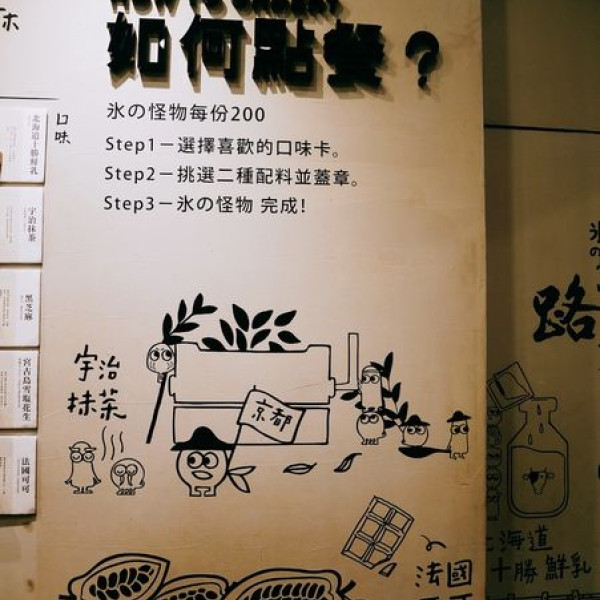 HOW TO ORDER?
如何點餐？
氷の怪物每份200
Step1－選擇喜歡的口味卡。
Step2－挑選二種配料並蓋章。
Step3－氷の怪物 完成!
口味
北海道十勝鮮乳
宇治抹茶
黑芝麻
宮古島雪塩花生
法國可可
宇治
抹茶
京都
法國
氷の
路
海道
十勝 鮮乳